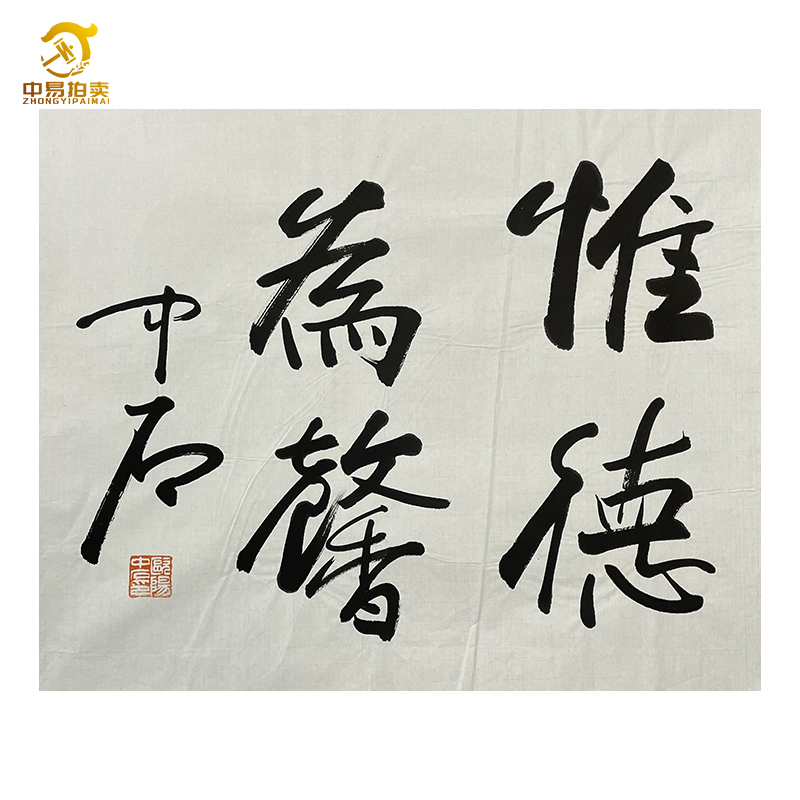 中易拍卖
ZHONGYIPAIMAI
惟德
為馨
中石
歐陽
中石